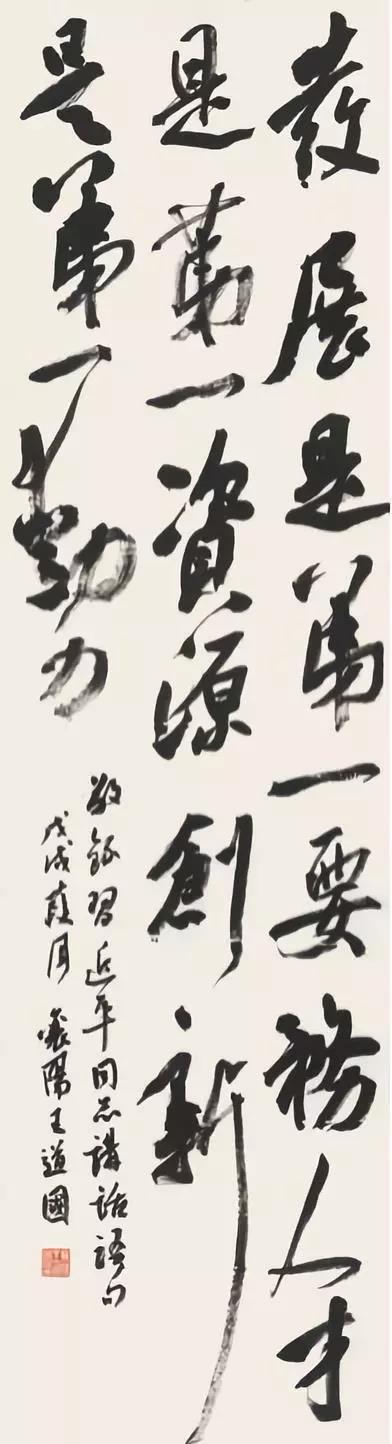 發展是第一要務人才
是第一資源創新
是第一動力
敬錄習近平同志講話語句
戊戌夏月襄陽王道國